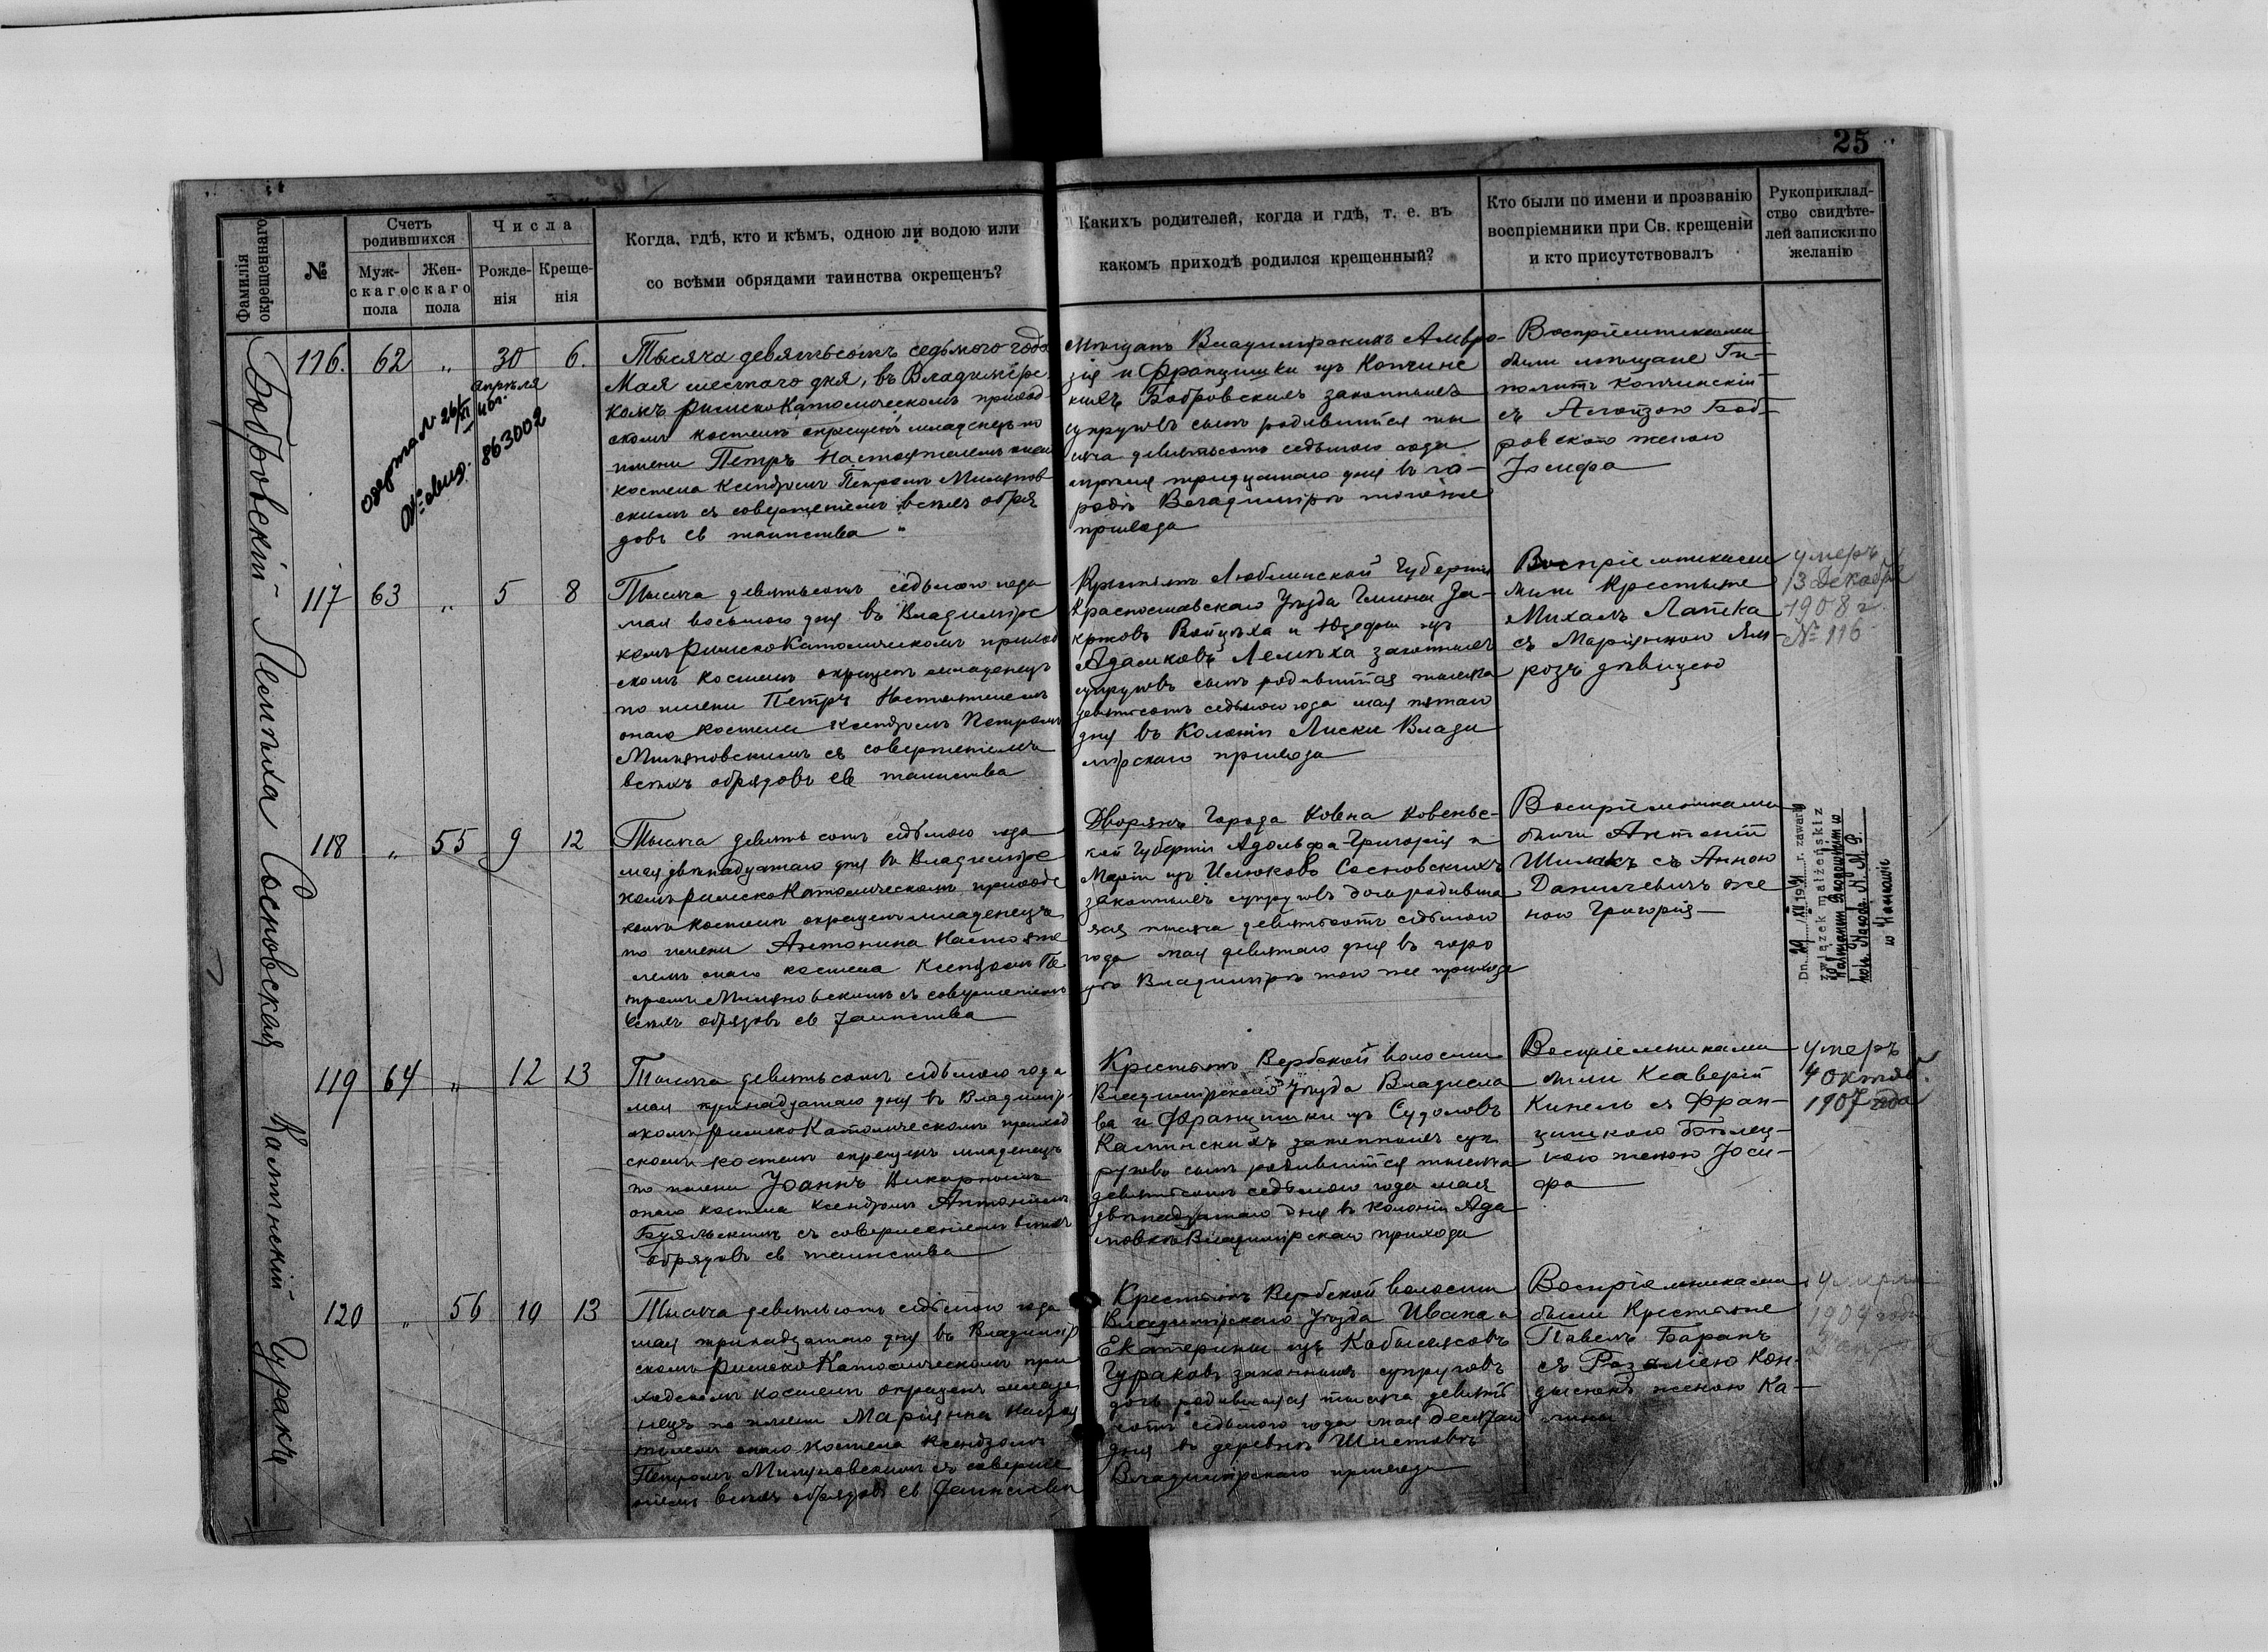 25
Фамилія
окрещеннаго
№
Счетъ
родившихся
Муж-
скаго
пола
Жен-
скаго
пола
Числа
Рожде-
нія
Креще-
нія
Когда, гдѣ, кто и кѣмъ, одною ли водою или
со всѣми обрядами таинства окрещенъ?
Какихъ родителей, когда и гдѣ, т. е. въ
какомъ приходѣ родился крещенный?
Кто были по имени и прозванію
воспріемники при Св. крещеніи
и кто присутствовалъ
Рукоприклад-
ство свидѣте-
лей записки по
желанію
Бобровскій
116. 62 " 30 6.
апрѣля
863002
Тысяча девятьсотъ седьмого года
Мая шестаго дня, въ Владимірс
комъ РимскоКатолическомъ приход
скомъ костелѣ окрещенъ младенецъ по
имени Петръ Настоятелемъ онаго
костела Ксендзомъ Петромъ
скимъ съ совершеніемъ всѣхъ обря
довъ св таинства
Мѣщанъ Владимірскихъ Амвро-
зія и Францишки изъ Копчинс
кихъ Бобровскихъ законныхъ
супруговъ сынъ родившійся ты
сяча девятьсотъ седьмого года
апрѣля тридцатаго дня въ го-
родѣ Владимірѣ тогоже
прихода
Воспріемниками
были мѣщане Ги-
политъ Копчинскій
съ Боб-
ровскою женою
Іосифа
Лемѣха
117 63 " 5 8
Тысяча девятьсотъ седьмого года
мая восьмого дня въ Владимірс
комъ РимскоКатолическомъ приход
скомъ костелѣ окрещенъ младенецъ
по имени Петръ Настоятелемъ
онаго костела Ксендзомъ Петромъ
съ совершеніемъ
всѣхъ обрядовъ св таинства
Крестьянъ Люблинской Губерніи
Красноставскаго Уѣзда Гмины За-
кржовъ Войцѣха и Юзефы изъ
Адамковъ Лемѣха законныхъ
супруговъ сынъ родившійся тысяча
девятьсотъ седьмого года мая пятаго
дня въ Колоніи Лиски Влади
мірскаго прихода
Воспріемниками
были Крестьяне
Михалъ Латка
съ Маріянною Ям-
розъ дѣвицею
умеръ
13 Декабря
1908 г.
№ 116
Сосновская
118 " 55 9 12
Тысяча девятьсотъ седьмого года
мая двѣнадцатаго дня въ Владимірс
комъ РимскоКатолическомъ приходс
комъ костелѣ окрещенъ младенецъ
по имени Антонина Настояте
лемъ онаго костела Ксендзомъ Пе
тромъ съ совершеніемъ
всѣхъ обрядовъ св таинства
Дворянъ Города Ковна Ковенс-
кой Губерніи Адольфа-Григорія и
Маріи изъ Сосновскихъ
законныхъ супруговъ дочь родивша
яся тысяча девятьсотъ седьмого
года мая девятаго дня въ горо
дѣ Владимірѣ того же прихода
Воспріемниками
были Антоній
съ Анною
Даничевичъ же
ною Григорія
Dn. r. zawarł
związek małżeński z
Калинскій
119 64 " 12 13
Тысяча девятьсотъ седьмого года
мая тринадцатаго дня въ Владимір
скомъ РимскоКатолическомъ приход
скомъ костелѣ окрещенъ младенецъ
по имени Іоаннъ Викарнымъ
онаго костела Ксендзомъ Антоніемъ
съ совершеніемъ всѣхъ
обрядовъ св таинства
Крестьянъ Вербской волости
Владимірскаго Уѣзда Владисла
ва и Францишки изъ Судоловъ
Калинскихъ законныхъ суп
руговъ сынъ родившійся тысяча
девятьсотъ седьмого года мая
двѣнадцатаго дня въ колоніи Ада
мовкѣ Владимірскаго прихода
Воспріемниками
были Ксаверій
Кинель съ Фран-
цишкою
кою женою Іоси-
фа
умеръ
4 октяб.
1907 года
Цуракъ
120 " 56 10 13
Тысяча девятьсотъ седьмого года
мая тринадцатаго дня въ Владимір
скомъ РимскоКатолическомъ при
ходскомъ костелѣ окрещенъ младе
нецъ по имени Маріянна Настоя
телемъ онаго костела Ксендзомъ
Петромъ съ соверше
ніемъ всѣхъ обрядовъ св таинства
Крестьянъ Вербской волости
Владимірскаго Уѣзда Ивана и
Екатерины изъ
Цураковъ законныхъ супруговъ
дочь родившаяся тысяча девять
сотъ седьмого года мая десятаго
дня въ деревнѣ
Владимірскаго прихода
Воспріемниками
были Крестьяне
Павелъ Баранъ
съ Розаліею Кон-
женою
умерла
1909 года